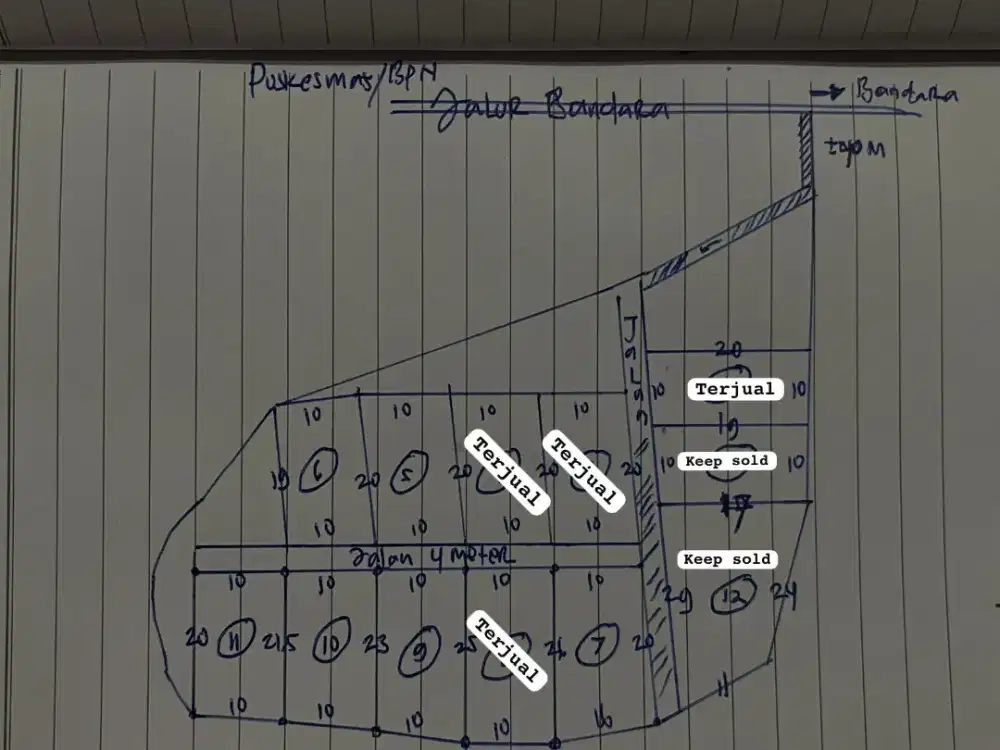 Puskesmas/BPN
Jalur Bandara
→ Bandara
20
10 Terjual 10
19
10 Keep sold 10
17
Keep sold
29 12 24
11
10 10 10 10
19 6 20 5 20 Terjual 20 Terjual 20
10 10 10 10
Jalan 4 meter
10 10 10 10 10
20 11 21,5 10 23 9 25 Terjual 26 7 20
10 10 10 10 16